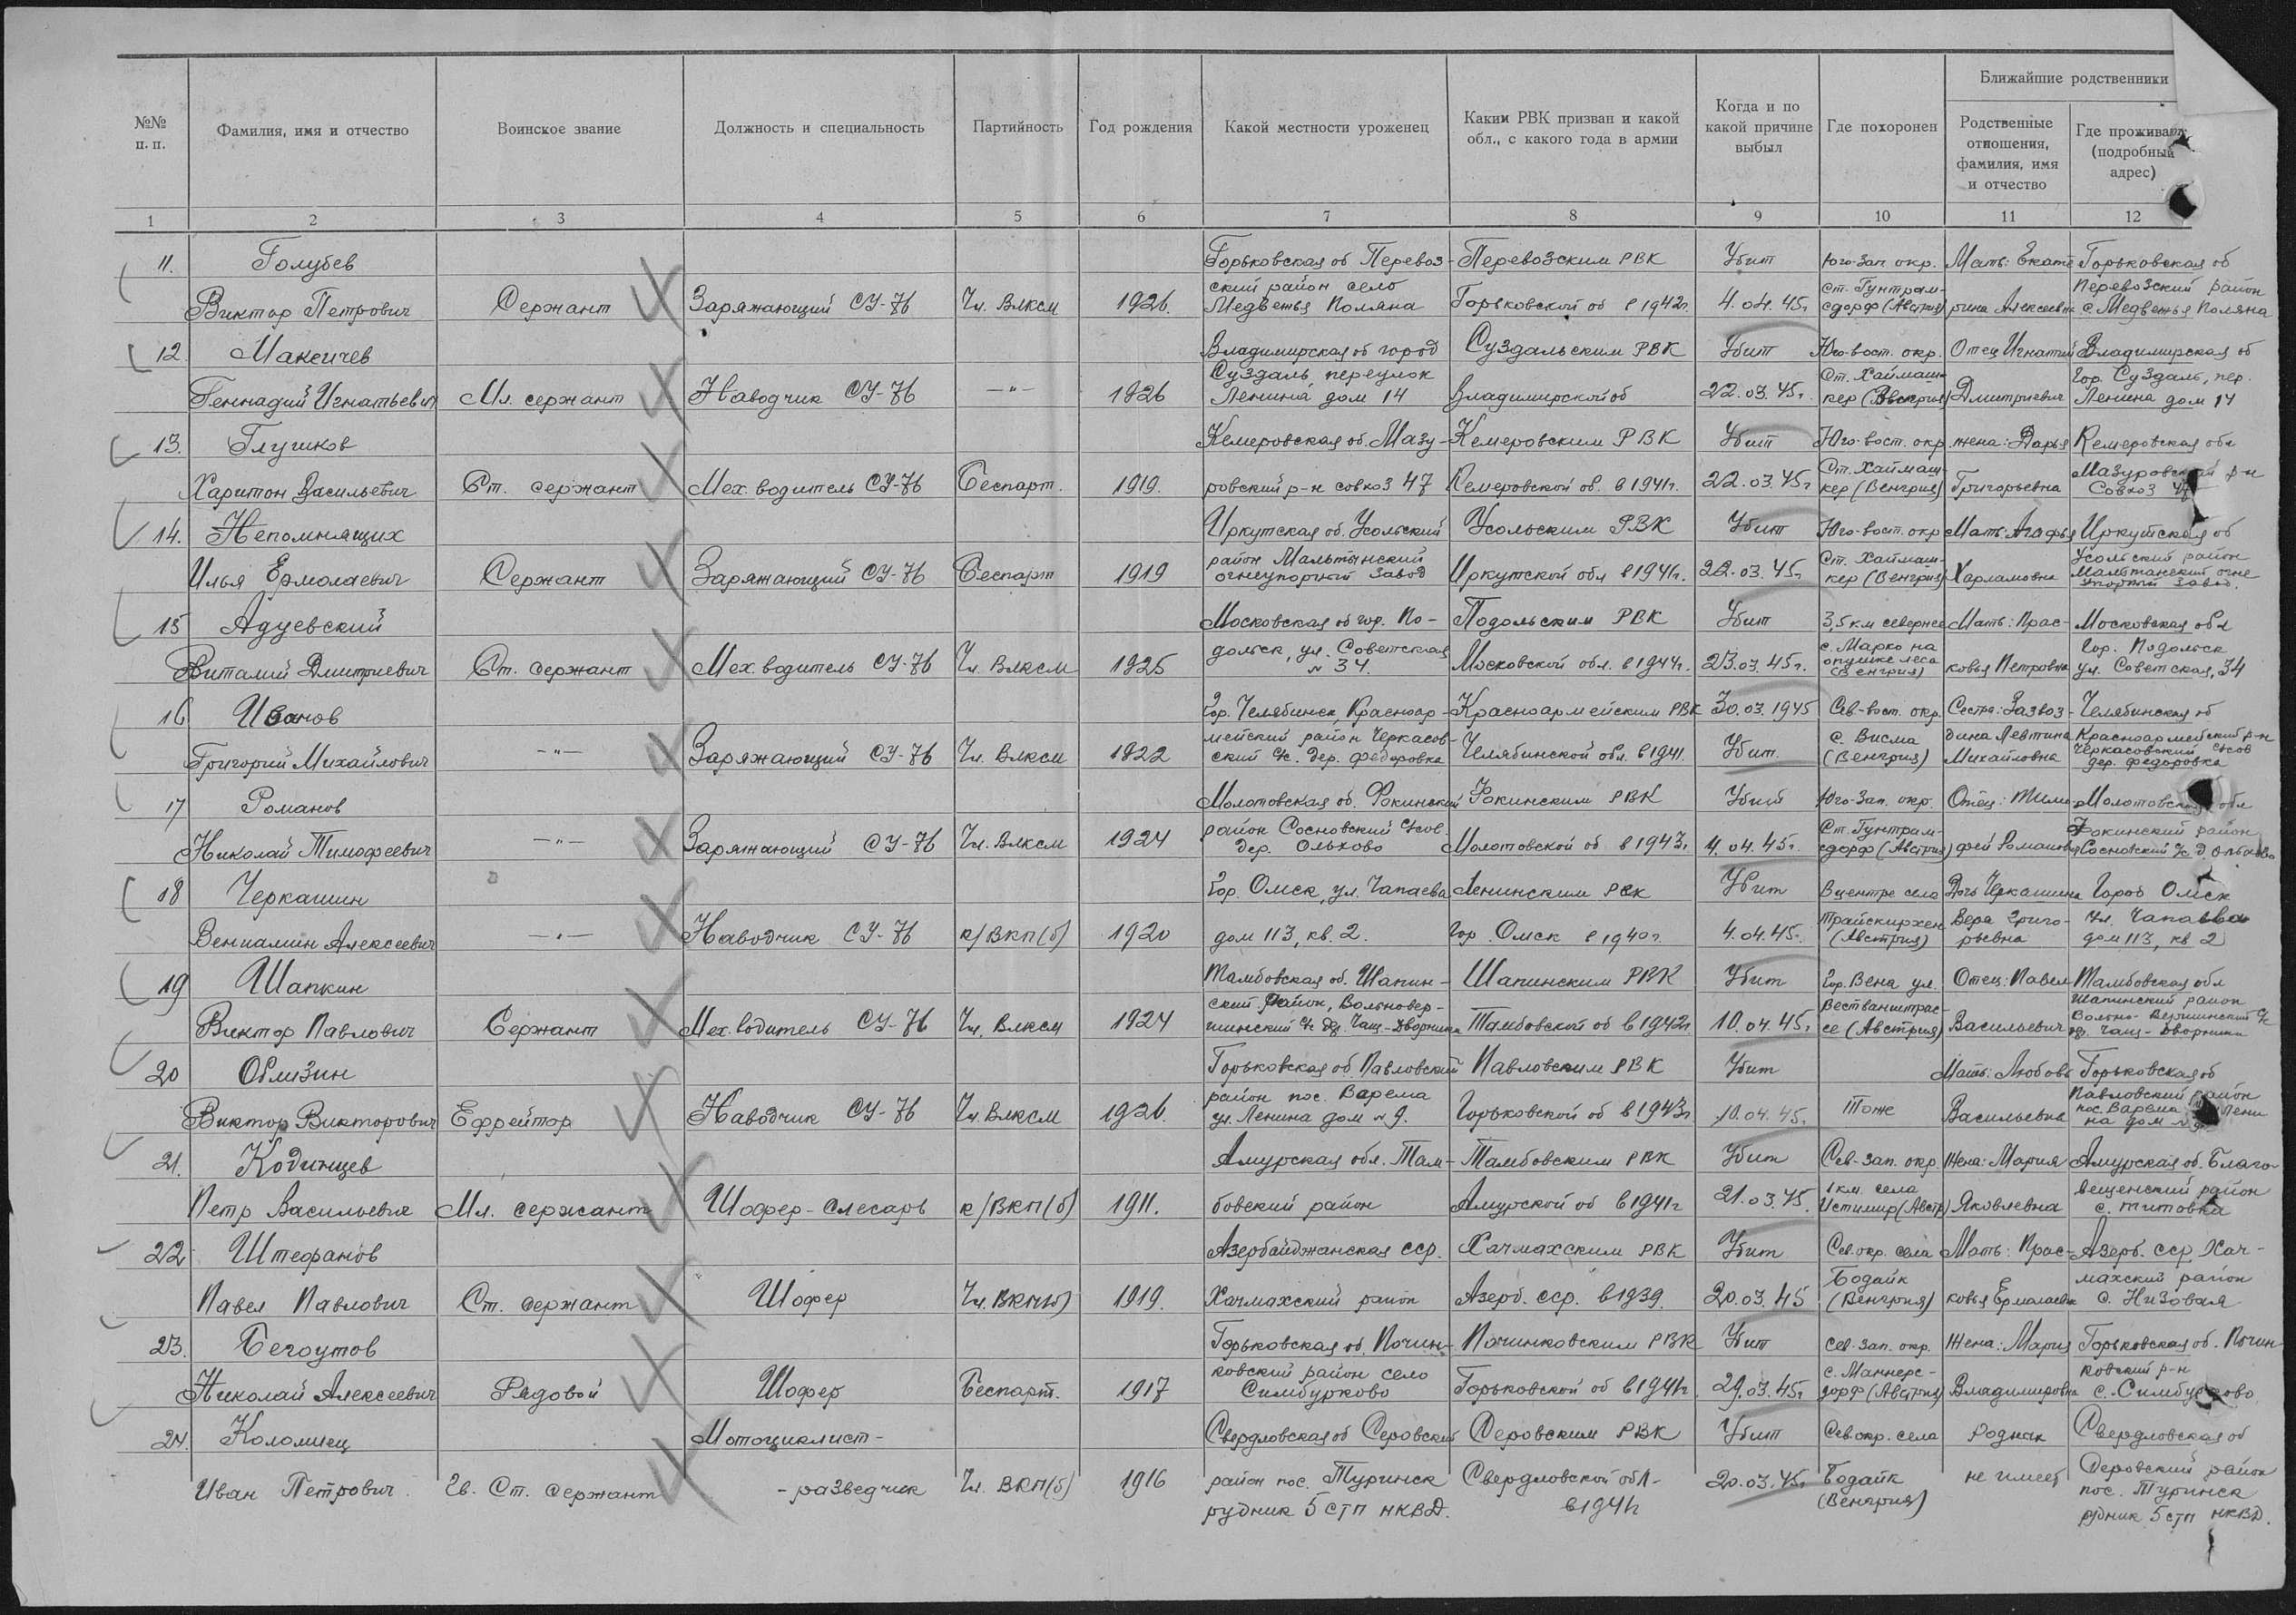 Ближайшие родственники
№№ п. п.
Фамилия, имя и отчество
Воинское звание
Должность и специальность
Партийность
Год рождения
Какой местности уроженец
Каким РВК призван и какой обл., с какого года в армии
Когда и по какой причине выбыл
Где похоронен
Родственные отношения, фамилия, имя и отчество
Где проживают (подробный адрес)
1 2 3 4 5 6 7 8 9 10 11 12
11. Голубев Горьковская об Перевоз- Перевозским РВК Убит Юго-Зап. окр. Мать: Екате Горьковская об
Виктор Петрович Сержант Заряжающий СУ-76 Чл. Влксм 1926. ский район село Медвежья Поляна Горьковской об в 1942г. 4.04.45г. Ст. Гунтрам-сдорф (Австрия) рина Алексеевна Перевозский район с. Медвежья Поляна
12. Максичев Владимирская об город Суздальским РВК Убит Юго-вост. окр. Отец Игнатий Владимирская об
Геннадий Игнатьевич Мл. сержант Наводчик СУ-76 —"— 1926 Суздаль, переулок Ленина дом 14 Владимирской об 22.03.45г. Ст. Хаймаш-кер Дмитриевич Гор. Суздаль, пер. Ленина дом 14
13. Глушков Кемеровская об. Мазу- Кемеровским РВК Убит Юго-вост. окр. жена: Дарья Кемеровская обл
Харитон Васильевич Ст. сержант Мех. водитель СУ-76 Беспарт. 1919. ровский р-н совхоз 47 Кемеровской об. в 1941г. 22.03.45г Ст. Хаймаш-кер (Венгрия) Григорьевна Мазуровский р-н Совхоз 47
14. Непомнящих Иркутская об. Усольский Усольским РВК Убит Юго-вост. окр Мать: Агафья Иркутская об
Илья Ермолаевич Сержант Заряжающий СУ-76 Беспарт 1919 район Мальтынский огнеупорный завод Иркутской обл в 1941г. 22.03.45г Ст. Хаймаш-кер (Венгрия) Харламовна Усольский район Мальтинский огне упорный завод.
15 Адуевский Московская об гор. По- Подольским РВК Убит 3,5 км севернее Мать: Прас- Московская обл
Виталий Дмитриевич Ст. сержант Мех. водитель СУ-76 Чл. Влксм 1925 дольск, ул. Советская № 34. Московской обл. в 1944г. 23.03.45г. с. Марко на опушке леса (Венгрия) ковья Петровна Гор. Подольск ул. Советская, 34
16 Иванов Гор. Челябинск, Красноар- Красноармейским РВК 30.03.1945 Сев-вост. окр. Сестра: Зазвоз- Челябинская об
Григорий Михайлович —"— Заряжающий СУ-76 Чл. Влксм 1922 мейский район Черкасов-ский с/с. дер. Федоровка Челябинской обл. в 1941. Убит. с. Висма (Венгрия) дина Левтина Михайловна Красноармейский р-н Черкасовский с/сов дер. Федоровка
17 Романов Молотовская об. Фокинский Фокинским РВК Убит Юго-Зап. окр. Отец: Тимо- Молотовская обл
Николай Тимофеевич —"— Заряжающий СУ-76 Чл. Влксм 1924 район Сосновский с/сов. дер. Ольхово Молотовской об в 1943г 4.04.45г. Ст. Гунтрам-сдорф (Австрия) фей Романович Фокинский район Сосновский с/с д. Ольхово
18 Черкашин Гор. Омск, ул. Чапаева Ленинским рвк Убит В центре села Дочь Черкашина Город Омск
Вениамин Алексеевич —"— Наводчик СУ-76 к/ВКП(б) 1920 дом 113, кв. 2. Гор. Омск в 1940г. 4.04.45г. Трайскирхен (Австрия) Вера Григо-рьевна ул. Чапаева дом 113, кв 2
19 Шапкин Тамбовская об. Шапин- Шапинским РВК Убит Гор. Вена ул. Отец: Павел Тамбовская обл
Виктор Павлович Сержант Мех. водитель СУ-76 Чл. Влксм 1924 ский район, Вольновер-шинский с/с др. Чащ-Дворники Тамбовской об в 1942г. 10.04.45г Вестванштрас-се (Австрия) Васильевич Шапинский район Вольно-Вершинский с/с др. Чащ-Дворники
20 Облизин Горьковская об. Павловский Павловским РВК Убит Мать: Любовь Горьковская об
Виктор Викторович Ефрейтор Наводчик СУ-76 Чл. Влксм 1926. район пос. Варема ул. Ленина дом № 9. Горьковской об в 1943г 10.04.45. Тоже Васильевна Павловский район пос. Варема ул Лени на дом № 9
21. Кодинцев Амурская обл. Там- Тамбовским РВК Убит Сев-зап. окр Жена: Мария Амурская об. Благо-
Петр Васильевич Мл. сержант Шофер-слесарь к/ВКП(б) 1911. бовский район Амурской об в 1941г 21.03.45. 1 км. села Истимир (Австр) Яковлевна вещенский район с. Титовка
22 Штефанов Азербайджанская сср. Хачмахским РВК Убит Сев. окр. села Мать: Прас- Азерб. сср Хач-
Павел Павлович Ст. сержант Шофер Чл. ВКП(б) 1919. Хачмахский район Азерб. сср. в 1939. 20.03.45 Бодайк (Венгрия) ковья Ермолаевна махский район с. Низовая
23. Бегоутов Горьковская об. Почин- Починковским РВК Убит Сев-зап. окр. Жена: Мария Горьковская об. Почин
Николай Алексеевич Рядовой Шофер Беспарт. 1917 ковский район село Симбурково Горьковской об в 1941г. 29.03.45г с. Маннерс-дорф (Австрия) Владимировна ковский р-н с. Симбурково
24. Коломиец Мотоциклист- Свердловская об Серовский Серовским РВК Убит Сев. окр. села Родных Свердловская об
Иван Петрович. Гв. Ст. сержант -разведчик Чл. ВКП(б) 1916 район пос. Туринск рудник 5 стп НКВД. Свердловской обл- в 1941г 20.03.45г Бодайк (Венгрия) не имеет Серовский район пос. Туринск рудник 5 стп НКВД.